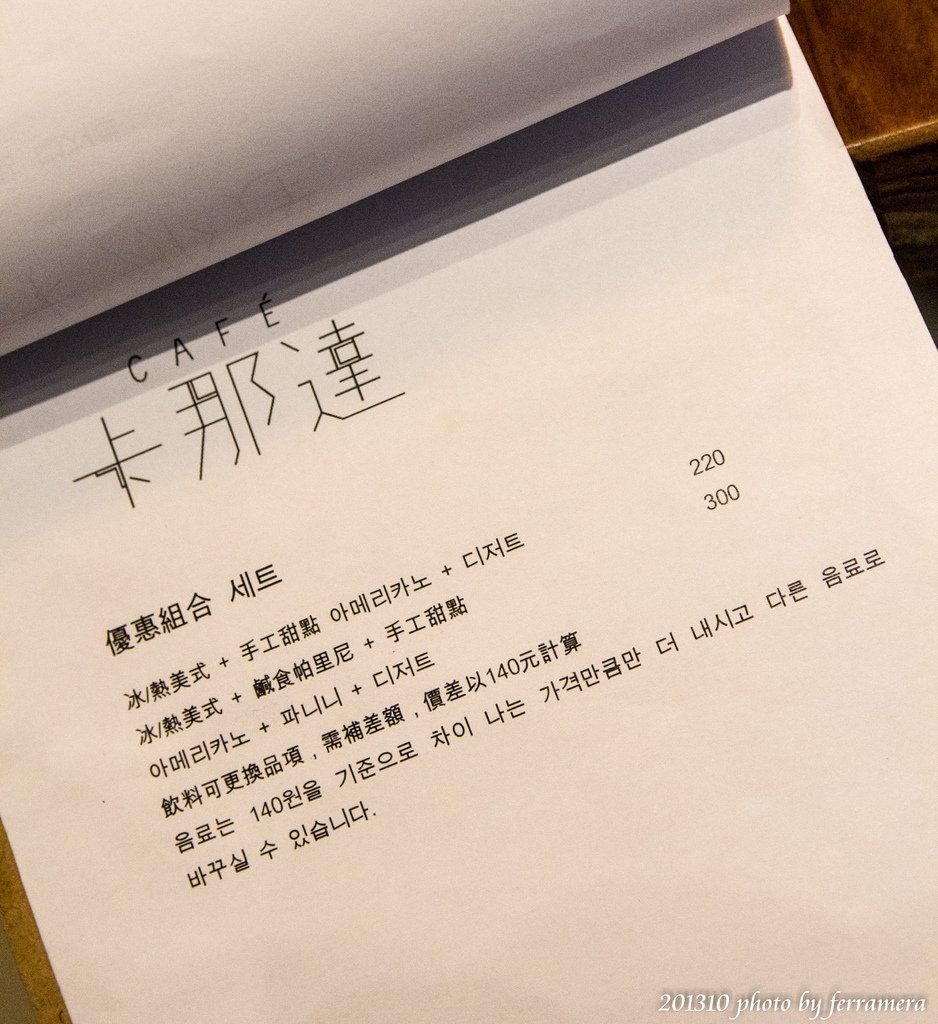 CAFÉ
卡那達
優惠組合 세트
冰/熱美式 + 手工甜點 아메리카노 + 디저트 220
冰/熱美式 + 鹹食帕里尼 + 手工甜點 300
아메리카노 + 파니니 + 디저트
飲料可更換品項，需補差額，價差以140元計算
음료는 140원을 기준으로 차이 나는 가격만큼만 더 내시고 다른 음료로
바꾸실 수 있습니다.
201310 photo by ferramera